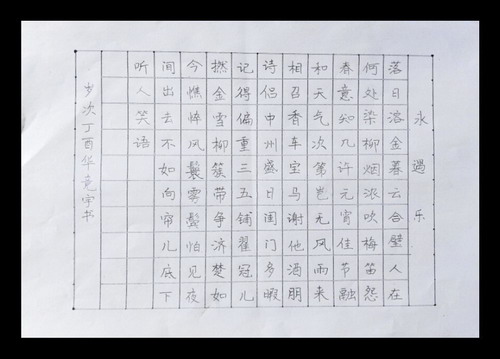 永遇乐
落日溶金暮云合璧人在
何处染柳烟浓吹梅笛怨
春意知几许元宵佳节融
和天气次第岂无风雨来
相召香车宝马谢他酒朋
诗侣中州盛日闺门多暇
记得偏重三五铺翠冠儿
撚金雪柳簇带争济楚如
今憔悴风鬟雾鬓怕见夜
间出去不如向帘儿底下
听人笑语
岁次丁酉华竟宇书